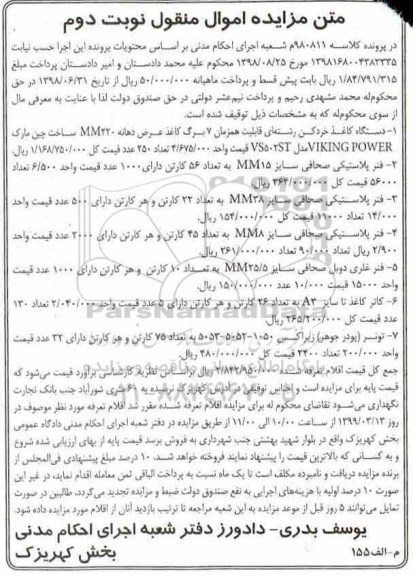 متن مزایده اموال منقول نوبت دوم
در پرونده کلاسه ۹۸۰۸۱۱م شعبه اجرای احکام مدنی بر اساس محتویات پرونده این اجرا حسب نیابت
۱۳۹۸۱۶۸۰۰۴۳۸۳۳۳۵ مورخ ۱۳۹۸/۰۸/۲۵ محکوم علیه محمد دادستان و امیر دادستان پرداخت مبلغ
۱/۸۴/۷۹۱/۳۱۵ ریال بابت پیش قسط و پرداخت ماهیانه ۵۰/۰۰۰/۰۰۰ ریال از تاریخ ۱۳۹۸/۰۶/۳۱ در حق
محکوم‌له محمد مشهدی رحیم و پرداخت نیم‌عشر دولتی در حق صندوق دولت لذا با عنایت به معرفی مال
از سوی محکوم‌له که به مشخصات ذیل توقیف شده است.
۱- دستگاه کاغذ خردکن رشته‌ای قابلیت همزمان ۷ برگ کاغذ عرض دهانه MM۲۲۰ ساخت چین مارک
VIKING POWER مدل VS۵۰۲ST قیمت واحد ۴/۶۷۵/۰۰۰ تعداد ۲۵۰ عدد قیمت کل ۱/۱۶۸/۷۵۰/۰۰۰ ریال.
۲- فنر پلاستیکی صحافی سایز MM۱۵ به تعداد ۵۶ کارتن دارای ۱۰۰۰ عدد قیمت واحد ۶/۵۰۰ تعداد
۵۶۰۰۰ قیمت کل ۳۶۴/۰۰۰/۰۰۰ ریال.
۳- فنر پلاستیکی صحافی سایز MM۳۸ به تعداد ۲۲ کارتن و هر کارتن دارای ۵۰۰ عدد قیمت واحد
۱۴/۰۰۰ تعداد ۱۱۰۰۰ قیمت کل ۱۵۴/۰۰۰/۰۰۰ ریال.
۴- فنر پلاستیکی صحافی سایز MM۸ به تعداد ۴۵ کارتن و هر کارتن دارای ۲۰۰۰ عدد قیمت واحد
۲/۹۰۰ ریال تعداد ۹۰/۰۰۰ تعداد قیمت کل ۲۶۱/۰۰۰/۰۰۰ ریال.
۵- فنر فلزی دوبل صحافی سایز MM۲۵/۵ به تعداد ۱۰ کارتن و هر کارتن دارای ۱۰۰۰ عدد قیمت
واحد ۱۵۰۰۰ قیمت ۱۰/۰۰۰ عدد ۱۵۰/۰۰۰/۰۰۰ ریال.
۶- کاتر کاغذ تا سایز A۳ به تعداد ۲۶ کارتن و هر کارتن دارای ۵ عدد قیمت واحد ۲/۰۴۰/۰۰۰ تعداد ۱۳۰
عدد قیمت کل ۲۶۵/۲۰۰/۰۰۰ ریال.
۷- تونر (پودر جوهر) زیراکس ۱۰۵۰-۵۰۵۲-۵۰۵۳ به تعداد ۷۵ کارتن و هر کارتن دارای ۳۲ عدد قیمت
واحد ۲۰۰/۰۰۰ تعداد ۲۴۰۰ قیمت کل ۴۸۰/۰۰۰/۰۰۰ ریال.
جمع کل قیمت اقلام تعرفه شده ۲/۸۴۲/۹۵۰/۰۰۰ ریال براساس نظریه کارشناس برآورد قیمت می‌شود که
قیمت پایه برای مزایده است و اجناس توقیفی در آدرس کهریزک نرسیده به ۶۰ متری شورآباد جنب بانک تجارت
نگهداری می‌شود تقاضای محکوم له برای مزایده اقلام تعرفه شده مقرر شد اقلام تعرفه مورد نظر موصوف در
روز ۱۳۹۹/۰۳/۱۳ از ساعت ۱۰/۰۰ الی ۱۱/۰۰ از طریق مزایده در دفتر شعبه اجرای احکام مدنی دادگاه عمومی
بخش کهریزک واقع در بلوار شهید بهشتی جنب شهرداری به فروش برسد قیمت پایه از بهای ارزیابی شده شروع
و به کسانی که بالاترین قیمت را پیشنهاد نمایند فروخته خواهد شد. ۱۰ درصد مبلغ پیشنهادی فی‌المجلس از
برنده مزایده دریافت و نامبرده مکلف است تا یک ماه نسبت به پرداخت الباقی ثمن معامله اقدام نماید، در غیر این
صورت ۱۰ درصد اولیه با هزینه‌های اجرایی به نفع صندوق دولت ضبط و مزایده تجدید می‌گردد، طالبین در صورت
تمایل می‌توانند ۵ روز قبل از موعد مزایده به این شعبه مراجعه تا ترتیب بازدید آنان از اقلام مورد مزایده داده شود.
یوسف بدری- دادورز دفتر شعبه اجرای احکام مدنی
بخش کهریزک
م-الف۱۵۵
ParsNamadData